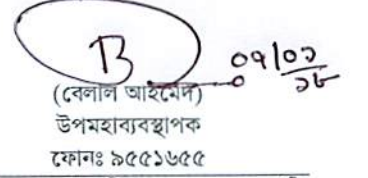 ০৭/০১
১৮
(বেলাল আহমেদ)
উপমহাব্যবস্থাপক
ফোনঃ ৯৫৫১৬৫৫